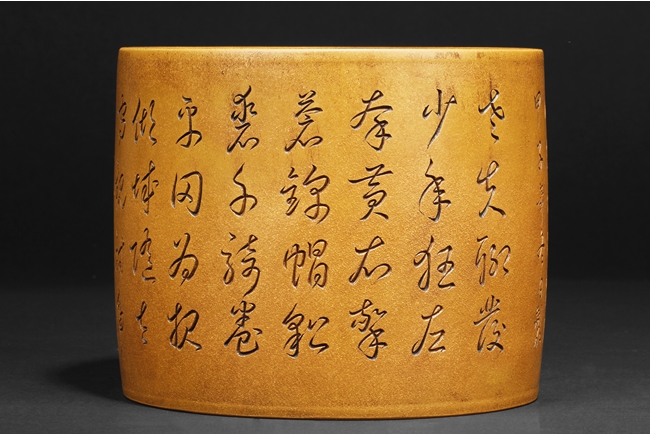 老夫聊發
少年狂左
牽黃右擎
蒼錦帽貂
裘千騎卷
平岡為報
傾城隨太
守